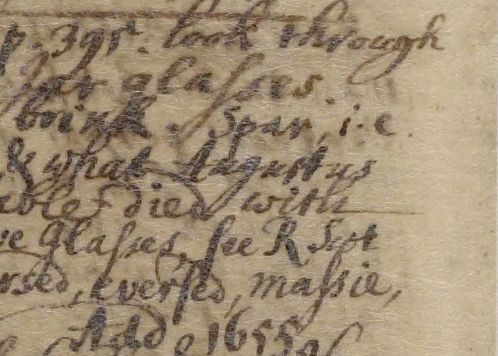 p. 391. look through
glasses
brink. Spar, i.e.
& what Augustus
ables died with
ve Glasses, see R Scot
rsed, eversed, massie,
Add 1655